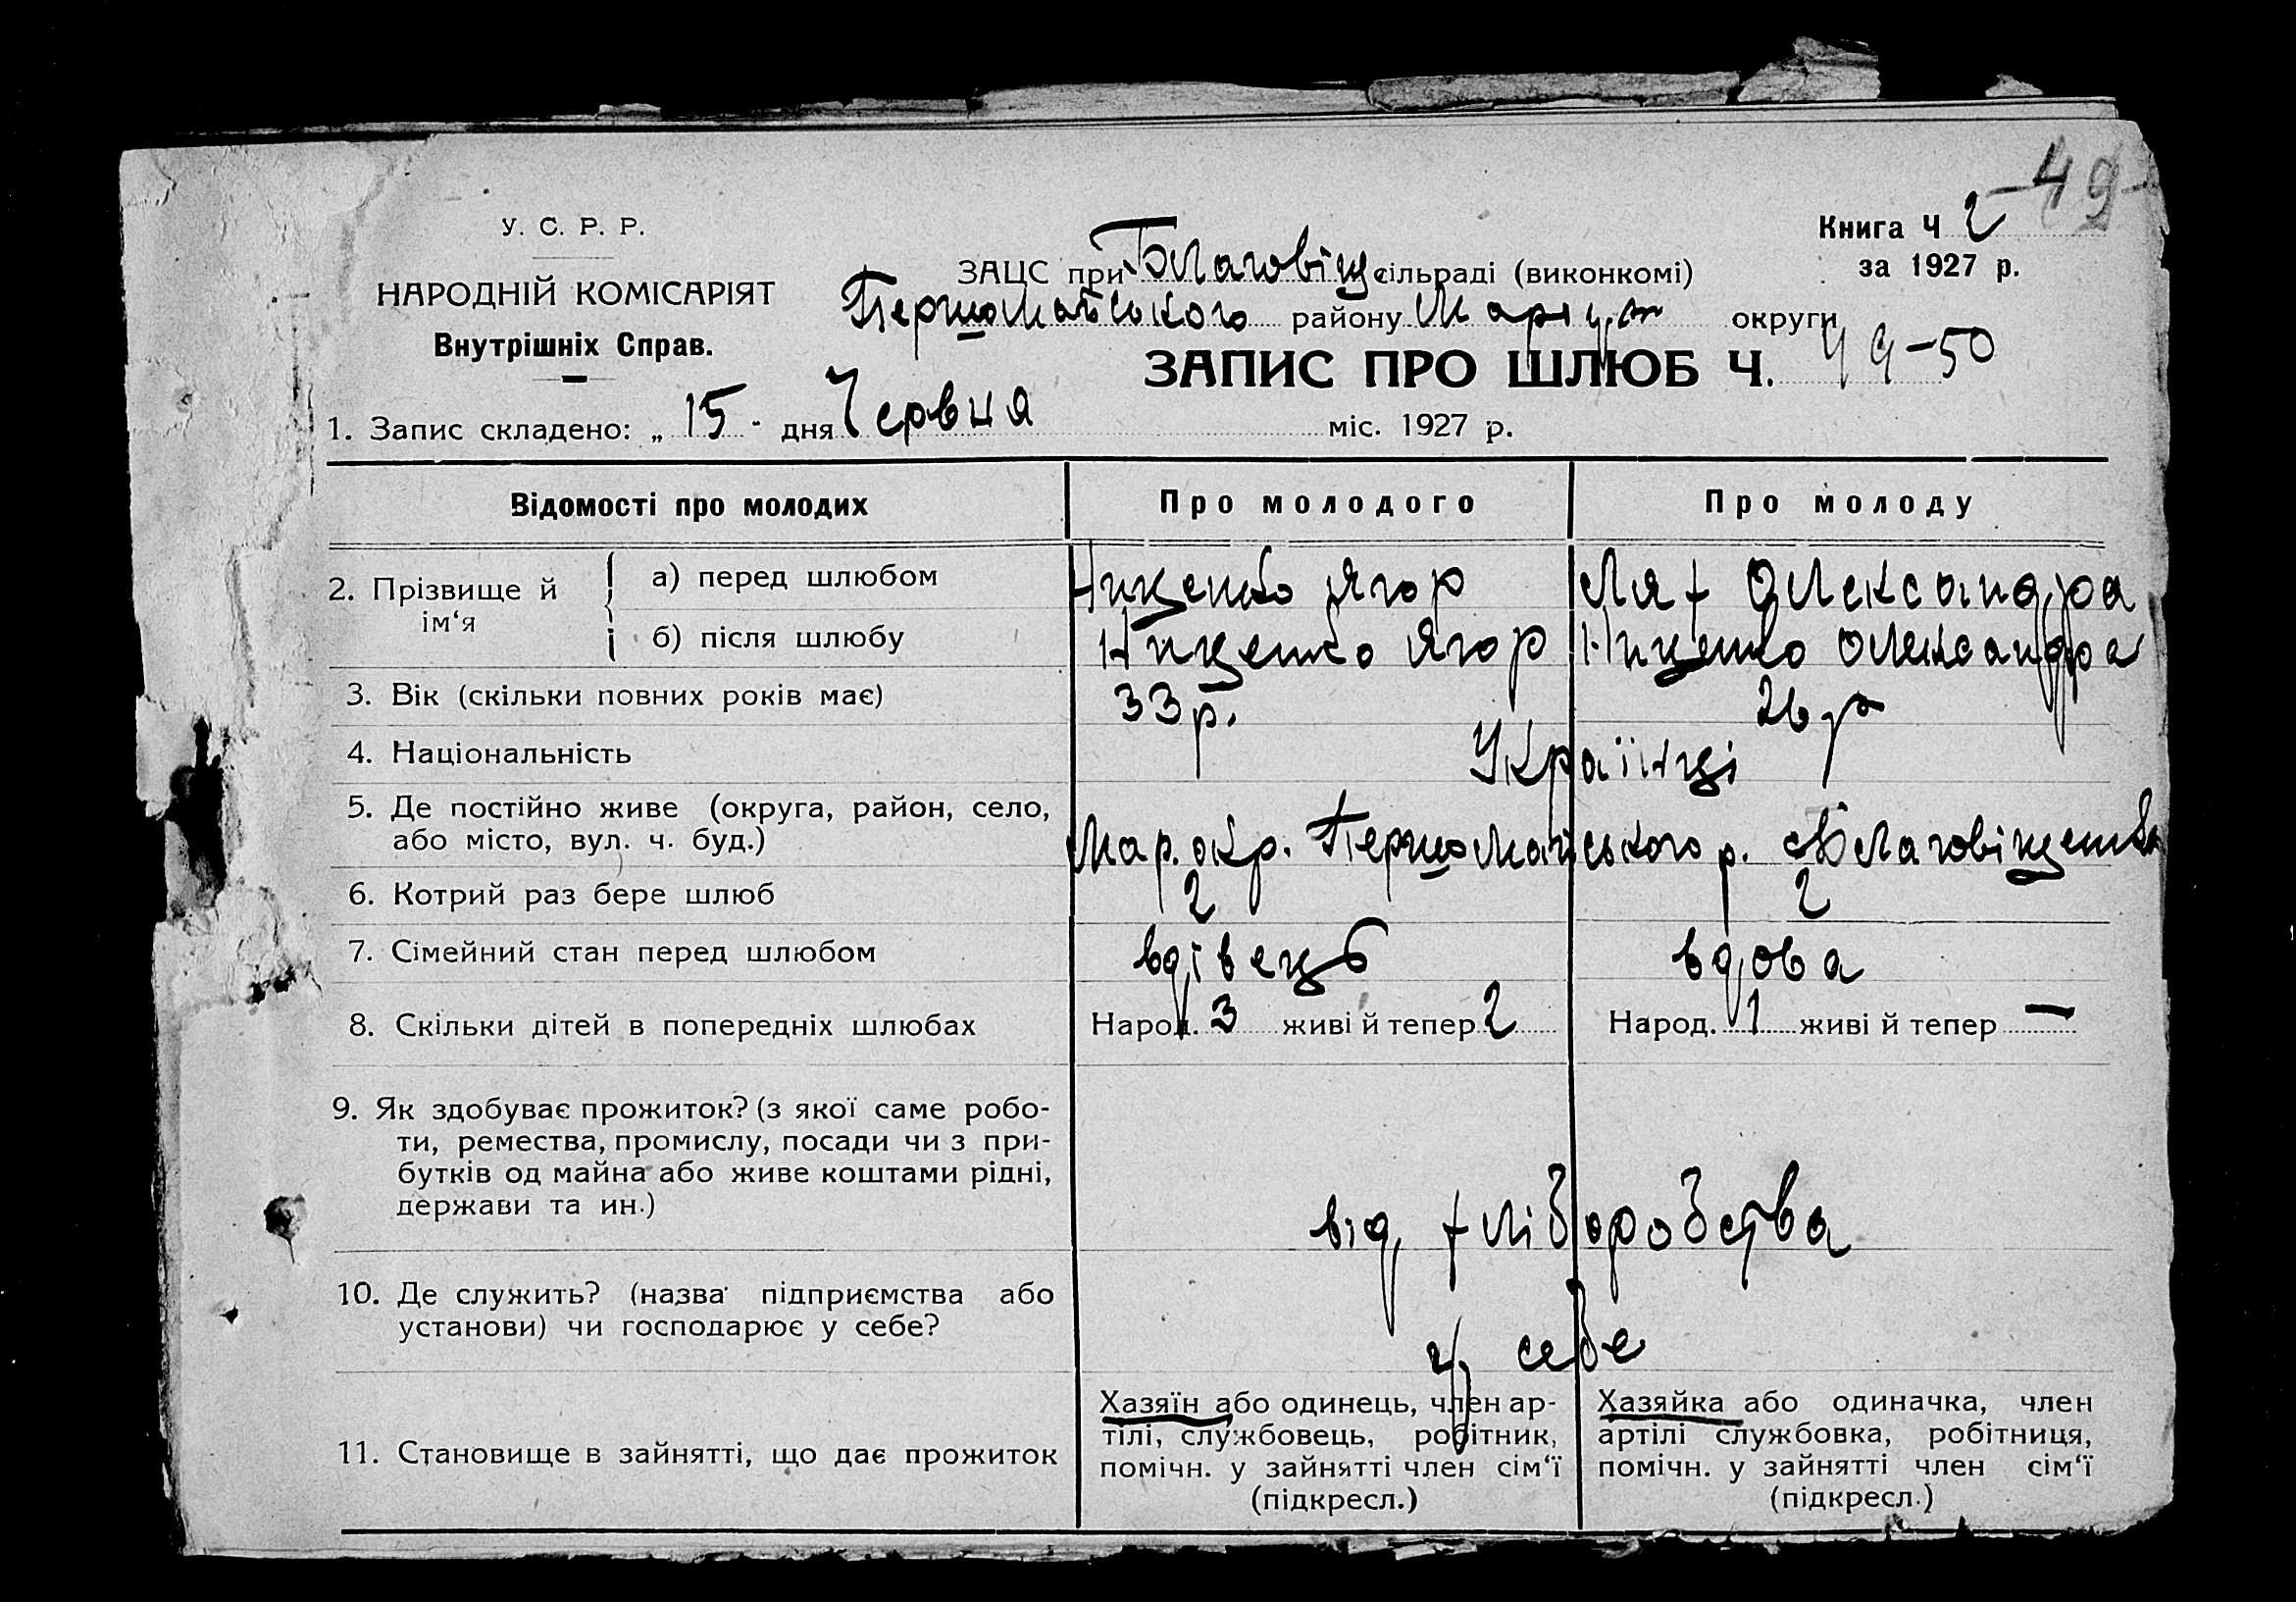 -49-
У. С. Р. Р.
НАРОДНІЙ КОМІСАРІЯТ
Внутрішніх Справ.
Книга Ч 2
за 1927 р.
ЗАЦС при Благовіщ сільраді (виконкомі)
Першомайського району Маріуп округи
ЗАПИС ПРО ШЛЮБ Ч. 49-50
1. Запис складено: „ 15 - дня Червня міс. 1927 р.
Відомості про молодих Про молодого Про молоду
2. Прізвище й ім‘я
а) перед шлюбом Нищенко Ягор Лях Олександра
б) після шлюбу Нищенко Ягор Нищенко Олександра
3. Вік (скільки повних років має) 33 р. 26 р
4. Національність Українці
5. Де постійно живе (округа, район, село,
або місто, вул. ч. буд.) Мар. окр. Першомайського р. с Благовіщенка
6. Котрий раз бере шлюб 2 2
7. Сімейний стан перед шлюбом вдівець вдова
8. Скільки дітей в попередніх шлюбах Народ. 3 живі й тепер 2 Народ. 1 живі й тепер —
9. Як здобуває прожиток? (з якої саме робо-
ти, ремества, промислу, посади чи з при-
бутків од майна або живе коштами рідні,
держави та ин.) від хліборобства
10. Де служить? (назва підприємства або
установи) чи господарює у себе? у себе
11. Становище в зайнятті, що дає прожиток
Хазяїн або одинець, член ар-
тілі, службовець, робітник,
помічн. у зайнятті член сім‘ї
(підкресл.)
Хазяйка або одиначка, член
артілі службовка, робітниця,
помічн. у зайнятті член сім‘ї
(підкресл.)